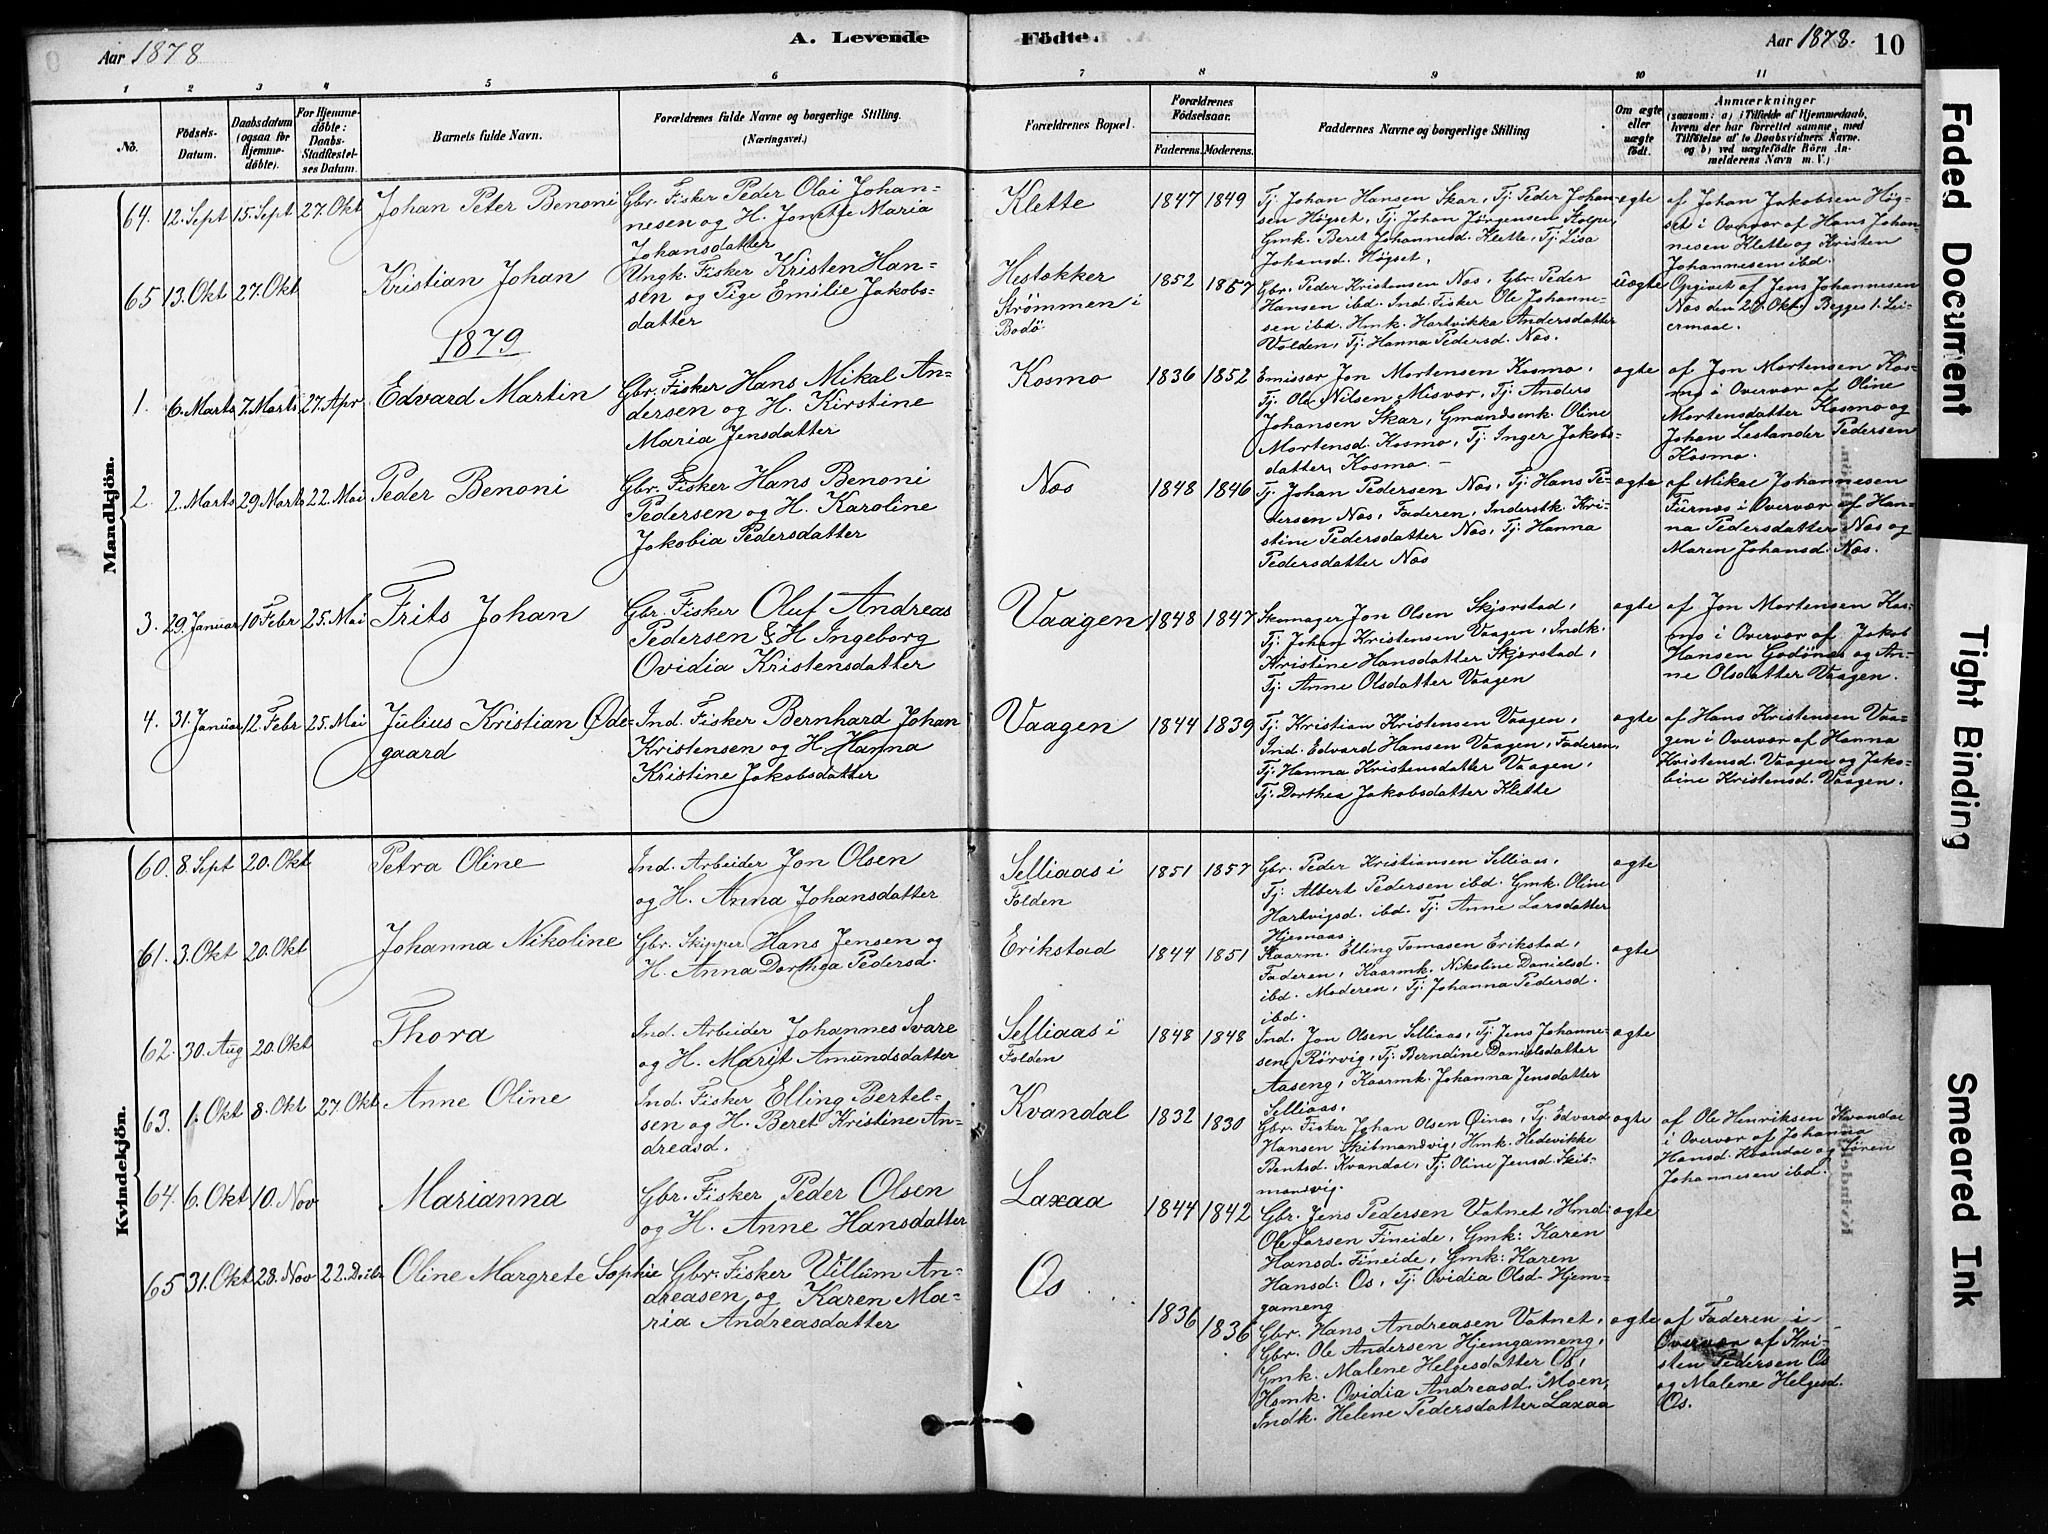 Aar 1878
A. Levende Födte.
Aar 1878. 10
1 2 3 4 5 6 7 8 9 10 11
No.
Födsels-
Datum.
Daabsdatum
(ogsaa for
Hjemme-
döbte).
For Hjemme-
döbte:
Daabs-
Stadfæstel-
ses Datum.
Barnets fulde Navn.
Forældrenes fulde Navne og borgerlige Stilling.
(Næringsvei.)
Forældrenes Bopæl.
Forældrenes
Födselsaar.
Faderens. Moderens.
Faddernes Navne og borgerlige Stilling
Om ægte
eller
uægte
födt.
Anmærkninger
(saasom: a) i Tilfælde af Hjemmedaab,
hvem der har forrettet samme, med
Tilföielse af to Daabsvidners Navne.
og b) ved uægtefödte Börn An-
melderens Navn m. V.)
Mandkjön.
64. 12. Sept 15. Sept 27. Okt
Johan Peter Benoni
Gbr. Fisker Peder Olai Johan-
nesen og H. Jonette Maria
Johansdatter
Klette
1847 1849
Tj. Johan Hansen Skar, Tj. Peder Johan-
sen Högset, Tj. Johan Jörgensen Stolpe,
Gmk. Beret Johannesd. Klette, Tj. Lisa
Johansd. Högset,
ægte
af Johan Jakobsen Hög-
set i Overvær af Hans Johan-
nesen Klette og Kristen
Johannesen ibd.
65 13. Okt 27. Okt
Kristian Johan
Ungk. Fisker Kristen Han-
sen og Pige Emilie Jakobs-
datter
Hestækker
Strömmen i
Bodö
1852 1857
Gbr. Peder Kristensen Næs, Gbr. Peder
Hansen ibd. Ind. Fisker Ole Johanne-
sen ibd. Hmk. Hartvikka Andersdatter
Volden, Tj. Hanna Pedersd. Næs.
uægte
Opgivet af Jens Johannesen
Næs den 27. Okt. Begges 1. Lei-
ermaal.
1879
1. 6. Marts 7. Marts 27. Apr
Edvard Martin
Gbr. Fisker Hans Mikal An-
dersen og H. Kirstine
Maria Jensdatter
Kosmo
1836 1852
Emissær Jon Mortensen Kosmo,
Tj. Ole Nilsen Misvær, Tj. Anders
Johansen Skar, Gmandsenk. Oline
Mortensd. Kosmo, Tj. Inger Jakobs-
datter Kosmo. -
ægte
af Jon Mortensen Kos-
mo i Overvær af Oline
Mortensdatter Kosmo og
Johan Lestander Pedersen
Kosmo.
2. 2. Marts 29 Marts 22. Mai
Peder Benoni
Gbr. Fisker Hans Benoni
Pedersen og H. Karoline
Jakobia Pedersdatter
Næs
1848 1846
Tj. Johan Pedersen Næs, Tj. Hans Pe-
dersen Næs, Faderen, Inderstk. Kri-
stine Pedersdatter Næs, Tj. Hanna
Pedersdatter Næs
ægte
af Mikal Johannesen
Furnæs i Overvær af Han-
na Pedersdatter Næs og
Maren Johansd. Næs.
3. 29. Januar 10 Febr 25. Mai
Frits Johan
Gbr. Fisker Oluf Andreas
Pedersen & H. Ingeborg
Ovidia Kristensdatter
Vaagen
1848 1847
Skrinmager Jon Olsen Skjerstad,
Tj. Johan Kristensen Vaagen, Indk.
Kristine Hansdatter Skjerstad,
Tj. Anne Olsdatter Vaagen
ægte
af Jon Mortensen Kos-
mo i Overvær af Jakob
Hansen Godönes og An-
ne Olsdatter Vaagen.
4. 31. Januar 12. Febr 25. Mai
Julius Kristian Øde-
gaard
Ind. Fisker Bernhard Johan
Kristensen og H. Hanna
Kristine Jakobsdatter
Vaagen
1844 1839
Tj. Kristian Kristensen Vaagen,
Ind. Edvard Hansen Vaagen, Faderen,
Tj. Hanna Kristensdatter Vaagen,
Tj. Dorthea Jakobsdatter Klette
ægte
af Hans Kristensen Vaa-
gen i Overvær af Hanna
Kristensd. Vaagen og Jako-
bine Kristensd. Vaagen.
Kvindekjön.
60. 8. Sept 20. Okt
Petra Oline
Ind. Arbeider Jon Olsen
og H. Anna Johansdatter
Selliaas i
Folden
1851 1857
Gbr. Peder Kristiansen Selliaas,
Tj. Albert Pedersen ibd. Gmk. Oline
Hartvigsd. ibd. Tj. Anne Larsdatter
Hjemaas.
ægte
61. 3. Okt 20. Okt
Johanna Nikoline
Gbr. Skipper Hans Jensen og
H. Anna Dorthea Pedersd.
Erikstad
1844 1851
Kaarm. Elling Tomasen Erikstad,
Faderen, Kaarmk. Nikoline Danielsd.
ibd. Moderen, Tj. Johanna Pedersd.
ibd.
ægte
62. 30. Aug 20. Okt
Thora
Ind. Arbeider Johannes Svare
og H. Marit Amundsdatter
Selliaas i
Folden
1848 1848
Ind. Jon Olsen Selliaas, Tj. Jens Johanne-
sen Rörvig, Tj. Berndine Danielsdatter
Aaseng, Kaarmk. Johanna Jensdatter
Selliaas,
ægte
63. 1. Okt 8. Okt 27. Okt
Anne Oline
Ind. Fisker Elling Bertel-
sen og H. Beret Kristine An-
dreasd.
Kvandal
1832 1830
Gbr. Fisker Johan Olsen Öines, Tj. Edvard
Hansen Skibmandvig, Hmk. Hedevikke
Bentsd. Kvandal, Tj. Oline Jensd. Skib-
mandvig.
ægte
af Ole Henriksen Kvandal
i Overvær af Johanna
Hansd. Kvandal og Sören
Johannesen ibd.
64. 6. Okt 10. Nov
Marianna
Gbr. Fisker Peder Olsen
og H. Anne Hansdatter
Laxaa
1844 1842
Gbr. Jens Pedersen Vatnet, Hmd.
Ole Larsen Fineide, Gmk: Karen
Hansd. Fineide, Gmk: Karen
Hansd: Os, Tj. Ovidia Olsd. Hjem-
gameng
ægte
65 31. Okt 28. Nov 22. Decbr
Oline Margrete Sophie
Gbr. Fisker Villum An-
dreasen og Karen Ma-
ria Andreasdatter
Os
1836 1836
Gbr. Hans Andreasen Vatnet,
Gbr. Ole Andersen Hjemgameng,
Gmk. Malene Helgesdatter Os,
Hsmk. Ovidia Andreasd. Moen,
Indk. Helene Pedersdatter Laxaa
ægte
af Faderen i
Overvær af Kri-
sten Pedersen Os
og Malene Helgesd.
Os.
Faded Document
Tight Binding
Smeared Ink